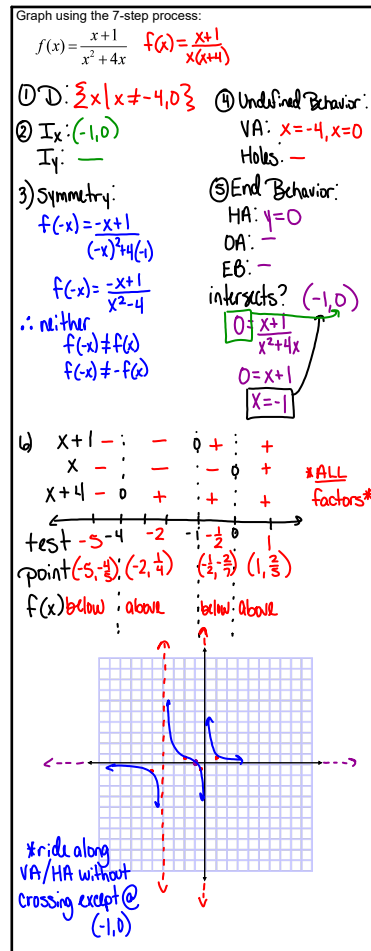 Graph using the 7-step process:
f(x) = (x+1)/(x² + 4x)   f(x) = (x+1)/(x(x+4))
① D: {x | x ≠ -4, 0}
② Ix: (-1,0)
Iy: —
3) Symmetry:
f(-x) = (-x+1)/((-x)²+4(-1))
f(-x) = (-x+1)/(x²-4)
∴ neither
f(-x) ≠ f(x)
f(-x) ≠ -f(x)
④ Undefined Behavior:
VA: x=-4, x=0
Holes: —
⑤ End Behavior:
HA: y=0
OA: —
EB: —
intersects? (-1,0)
0 = (x+1)/(x²+4x)
0 = x+1
x=-1
6) x+1 - - 0 + +
x - - - 0 +
x+4 - 0 + + +
*ALL
factors*
test -5 -4 -2 -1 -1/2 0 1
point (-5,-4/5) (-2,1/4) (-1/2,-2/7) (1,2/5)
f(x) below above below above
*ride along
VA/HA without
crossing except @
(-1,0)